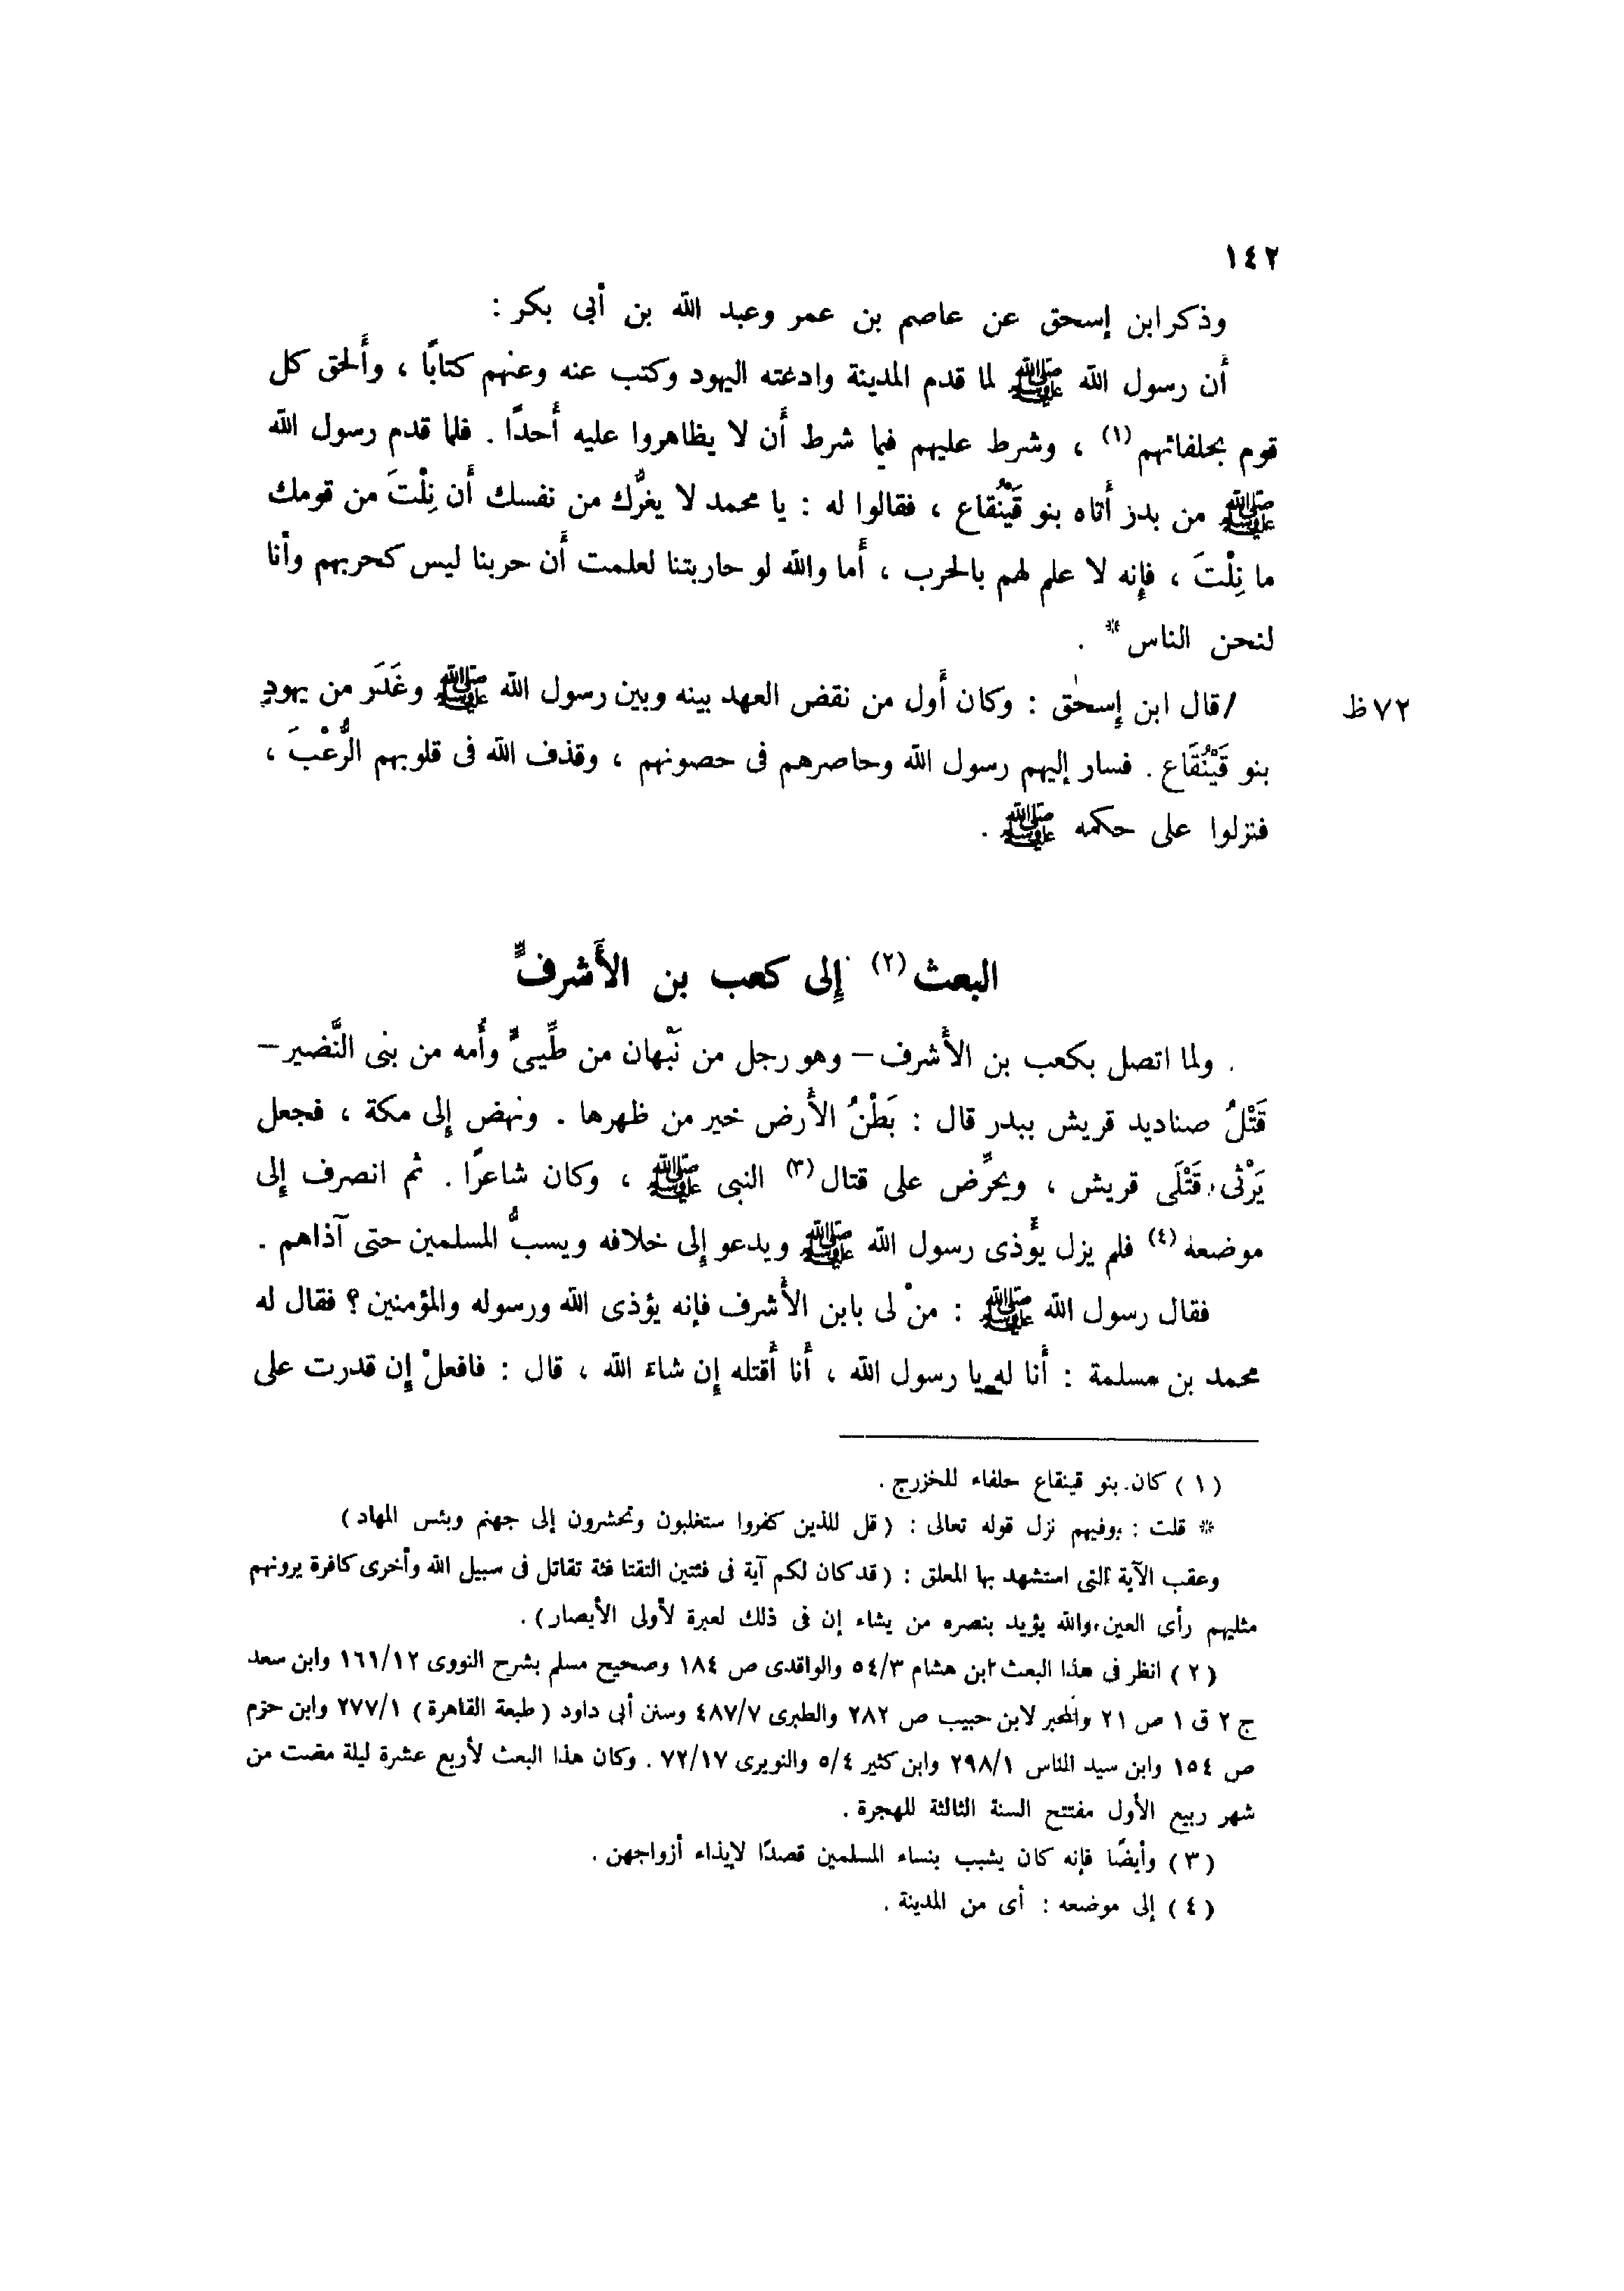 ١٤٢
وذكر ابن إسحق عن عاصم بن عمر وعبد الله بن أبى بكر :
أن رسول الله ﷺ لما قدم المدينة وادعته اليهود وكتب عنه وعنهم كتابًا ، وأَلحق كل
قوم بحلفائهم (١) ، وشرط عليهم فيما شرط أَن لا يظاهروا عليه أَحدًا . فلما قدم رسول الله
ﷺ من بدر أَتاه بنو قَيْنُقاع ، فقالوا له : يا محمد لا يغرُّك من نفسك أَن نِلْتَ من قومك
ما نِلْتَ ، فإنه لا علم لهم بالحرب ، أَما والله لو حاربتنا لعلمت أَن حربنا ليس كحربهم وأنا
لنحن الناس * .
/ قال ابن إسحٰق : وكان أَول من نقض العهد بينه وبين رسول الله ﷺ وغَدَر من يهودِ
٧٢ظ
بنو قَيْنُقَاع . فسار إليهم رسول الله وحاصرهم فى حصونهم ، وقذف الله فى قلوبهم الرُّعْبَ ،
فنزلوا على حكمه ﷺ .
البعث (٢) إلى كعب بن الأَشرف
ولما اتصل بكعب بن الأَشرف – وهو رجل من نَبْهان من طَيِّئ وأُمه من بنى النَّضير –
قَتْلُ صناديد قريش ببدر قال : بَطْنُ الأَرض خير من ظهرها . ونهض إلى مكة ، فجعل
يَرْثى قَتْلَى قريش ، ويحرِّض على قتال (٣) النبى ﷺ ، وكان شاعرًا . ثم انصرف إلى
موضعه (٤) فلم يزل يؤذى رسول الله ﷺ ويدعو إلى خلافه ويسبُّ المسلمين حتى آذاهم .
فقال رسول الله ﷺ : منْ لى بابن الأَشرف فإنه يؤذى الله ورسوله والمؤمنين ؟ فقال له
محمد بن مسلمة : أَنا له يا رسول الله ، أَنا أَقتله إن شاء الله ، قال : فافعلْ إن قدرت على
( ١ ) كان بنو قينقاع حلفاء للخزرج .
* قلت : وفيهم نزل قوله تعالى : ( قل للذين كفروا ستغلبون وتحشرون إلى جهنم وبئس المهاد )
وعقب الآية التى استشهد بها المعلق : ( قد كان لكم آية فى فئتين التقتا فئة تقاتل فى سبيل الله وأخرى كافرة يرونهم
مثليهم رأى العين والله يؤيد بنصره من يشاء إن فى ذلك لعبرة لأولى الأبصار ) .
( ٢ ) انظر فى هذا البعث ابن هشام ٥٤/٣ والواقدى ص ١٨٤ وصحيح مسلم بشرح النووى ١٦١/١٢ وابن سعد
ج ٢ ق ١ ص ٢١ والمحبر لابن حبيب ص ٢٨٢ والطبرى ٤٨٧/٧ وسنن أبى داود ( طبعة القاهرة ) ٢٧٧/١ وابن حزم
ص ١٥٤ وابن سيد الناس ٢٩٨/١ وابن كثير ٥/٤ والنويرى ٧٢/١٧ . وكان هذا البعث لأربع عشرة ليلة مضت من
شهر ربيع الأول مفتتح السنة الثالثة للهجرة .
( ٣ ) وأيضًا فإنه كان يشبب بنساء المسلمين قصدًا لإيذاء أزواجهن .
( ٤ ) إلى موضعه : أى من المدينة .